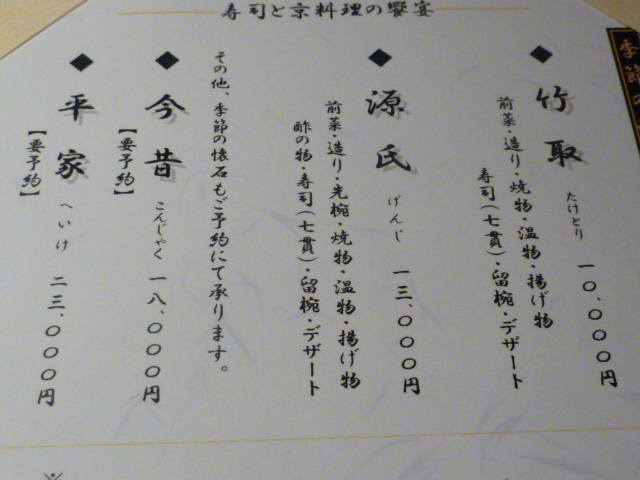 寿司と京料理の饗宴
季節の
◆竹取 たけとり 一〇、〇〇〇円
前菜・造り・焼物・温物・揚げ物
寿司(七貫)・留椀・デザート
◆源氏 げんじ 一三、〇〇〇円
前菜・造り・先椀・焼物・温物・揚げ物
酢の物・寿司(七貫)・留椀・デザート
その他、季節の懐石もご予約にて承ります。
◆今昔 こんじゃく 一八、〇〇〇円
【要予約】
◆平家 へいけ 二三、〇〇〇円
【要予約】
※